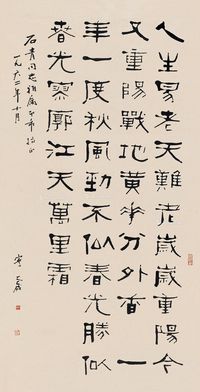 人生易老天難老歲歲重陽今
又重陽戰地黃華分外香一
年一度秋風勁不似春光勝似
春光寥廓江天萬里霜
石青同志
一九六二年十月